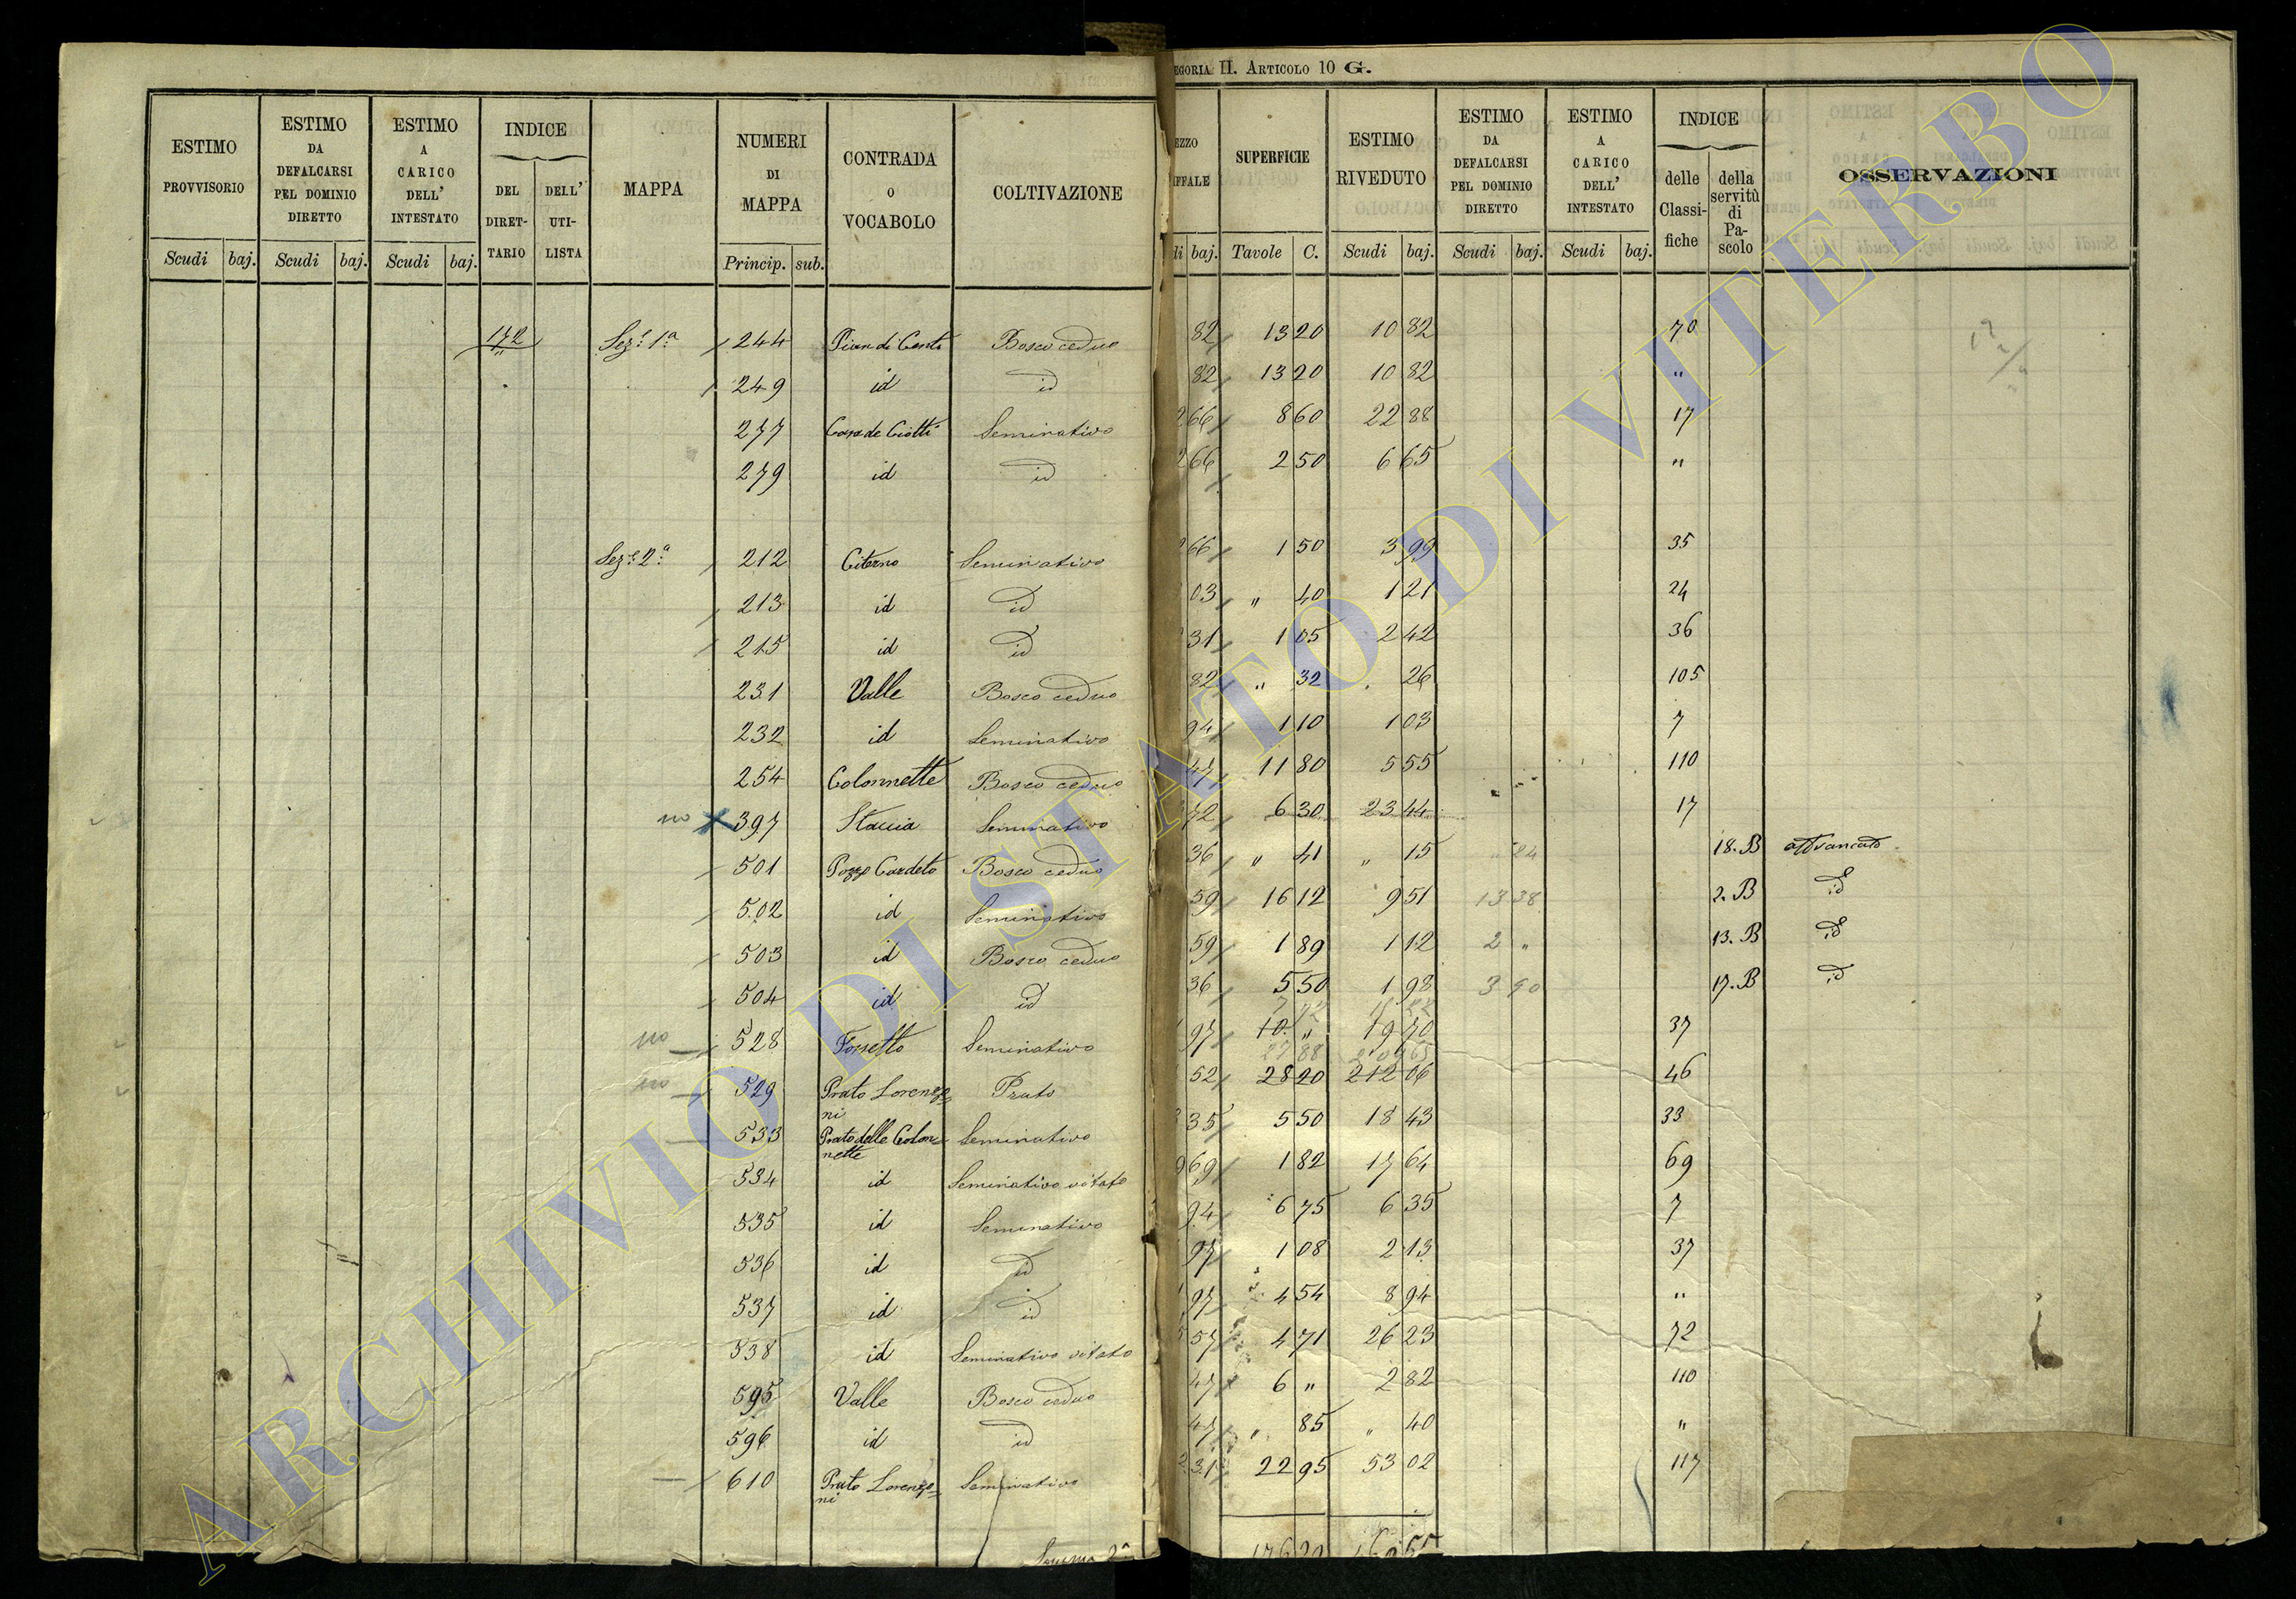 EGORIA II. ARTICOLO 10 G.
ESTIMO PROVVISORIO
ESTIMO DA DEFALCARSI PEL DOMINIO DIRETTO
ESTIMO A CARICO DELL' INTESTATO
INDICE
DEL DIRET-TARIO
DELL' UTI-LISTA
MAPPA
NUMERI DI MAPPA
CONTRADA O VOCABOLO
COLTIVAZIONE
EZZO IFFALE
SUPERFICIE
ESTIMO RIVEDUTO
ESTIMO DA DEFALCARSI PEL DOMINIO DIRETTO
ESTIMO A CARICO DELL' INTESTATO
INDICE
delle Classi-fiche
della servitù di Pa-scolo
OSSERVAZIONI
Scudi baj. Scudi baj. Scudi baj. Princip. sub. di baj. Tavole C. Scudi baj. Scudi baj. Scudi baj.
172 Sez.e 1a 244 Bosco ceduo 82 13 20 10 82 70
249 id id 82 13 20 10 82 "
277 Seminativo 66 8 60 22 88 17
279 id id 66 2 50 6 65 "
Sez.e 2a 212 Citerno Seminativo 66 1 50 3 99 35
213 id id 03 " 40 1 21 24
215 id id 31 1 05 2 42 36
231 Valle Bosco ceduo 82 " 32 26 105
232 id Seminativo 94 1 10 1 03 7
254 Colonnette Bosco ceduo 47 11 80 5 55 110
no 397 Staccia Seminativo 72 6 30 23 44 17
501 Pozzo Cardeto Bosco ceduo 36 " 41 " 15 " 24 18. B
502 id Seminativo 59 16 12 9 51 13 38 2. B id
503 id Bosco ceduo 59 1 89 1 12 2 " 13. B id
504 id id 36 5 50 1 98 3 90 17. B id
no 528 Fossetto Seminativo 97 10 " 19 70 37
no 529 Prato Lorenzo=ni Prato 52 28 20 212 06 46
533 Prato delle Colon=nette Seminativo 35 5 50 18 43 33
534 id Seminativo vitato 69 1 82 17 64 69
535 id Seminativo 94 6 75 6 35 7
536 id id 97 1 08 2 13 37
537 id id 97 4 54 8 94 "
538 id Seminativo vitato 57 4 71 26 23 72
595 Valle Bosco ceduo 47 6 " 2 82 110
596 id id 47 " 85 " 40 "
610 Prato Lorenzo=ni Seminativo 31 22 95 53 02 117
Somma
ARCHIVIO DI STATO DI VITERBO